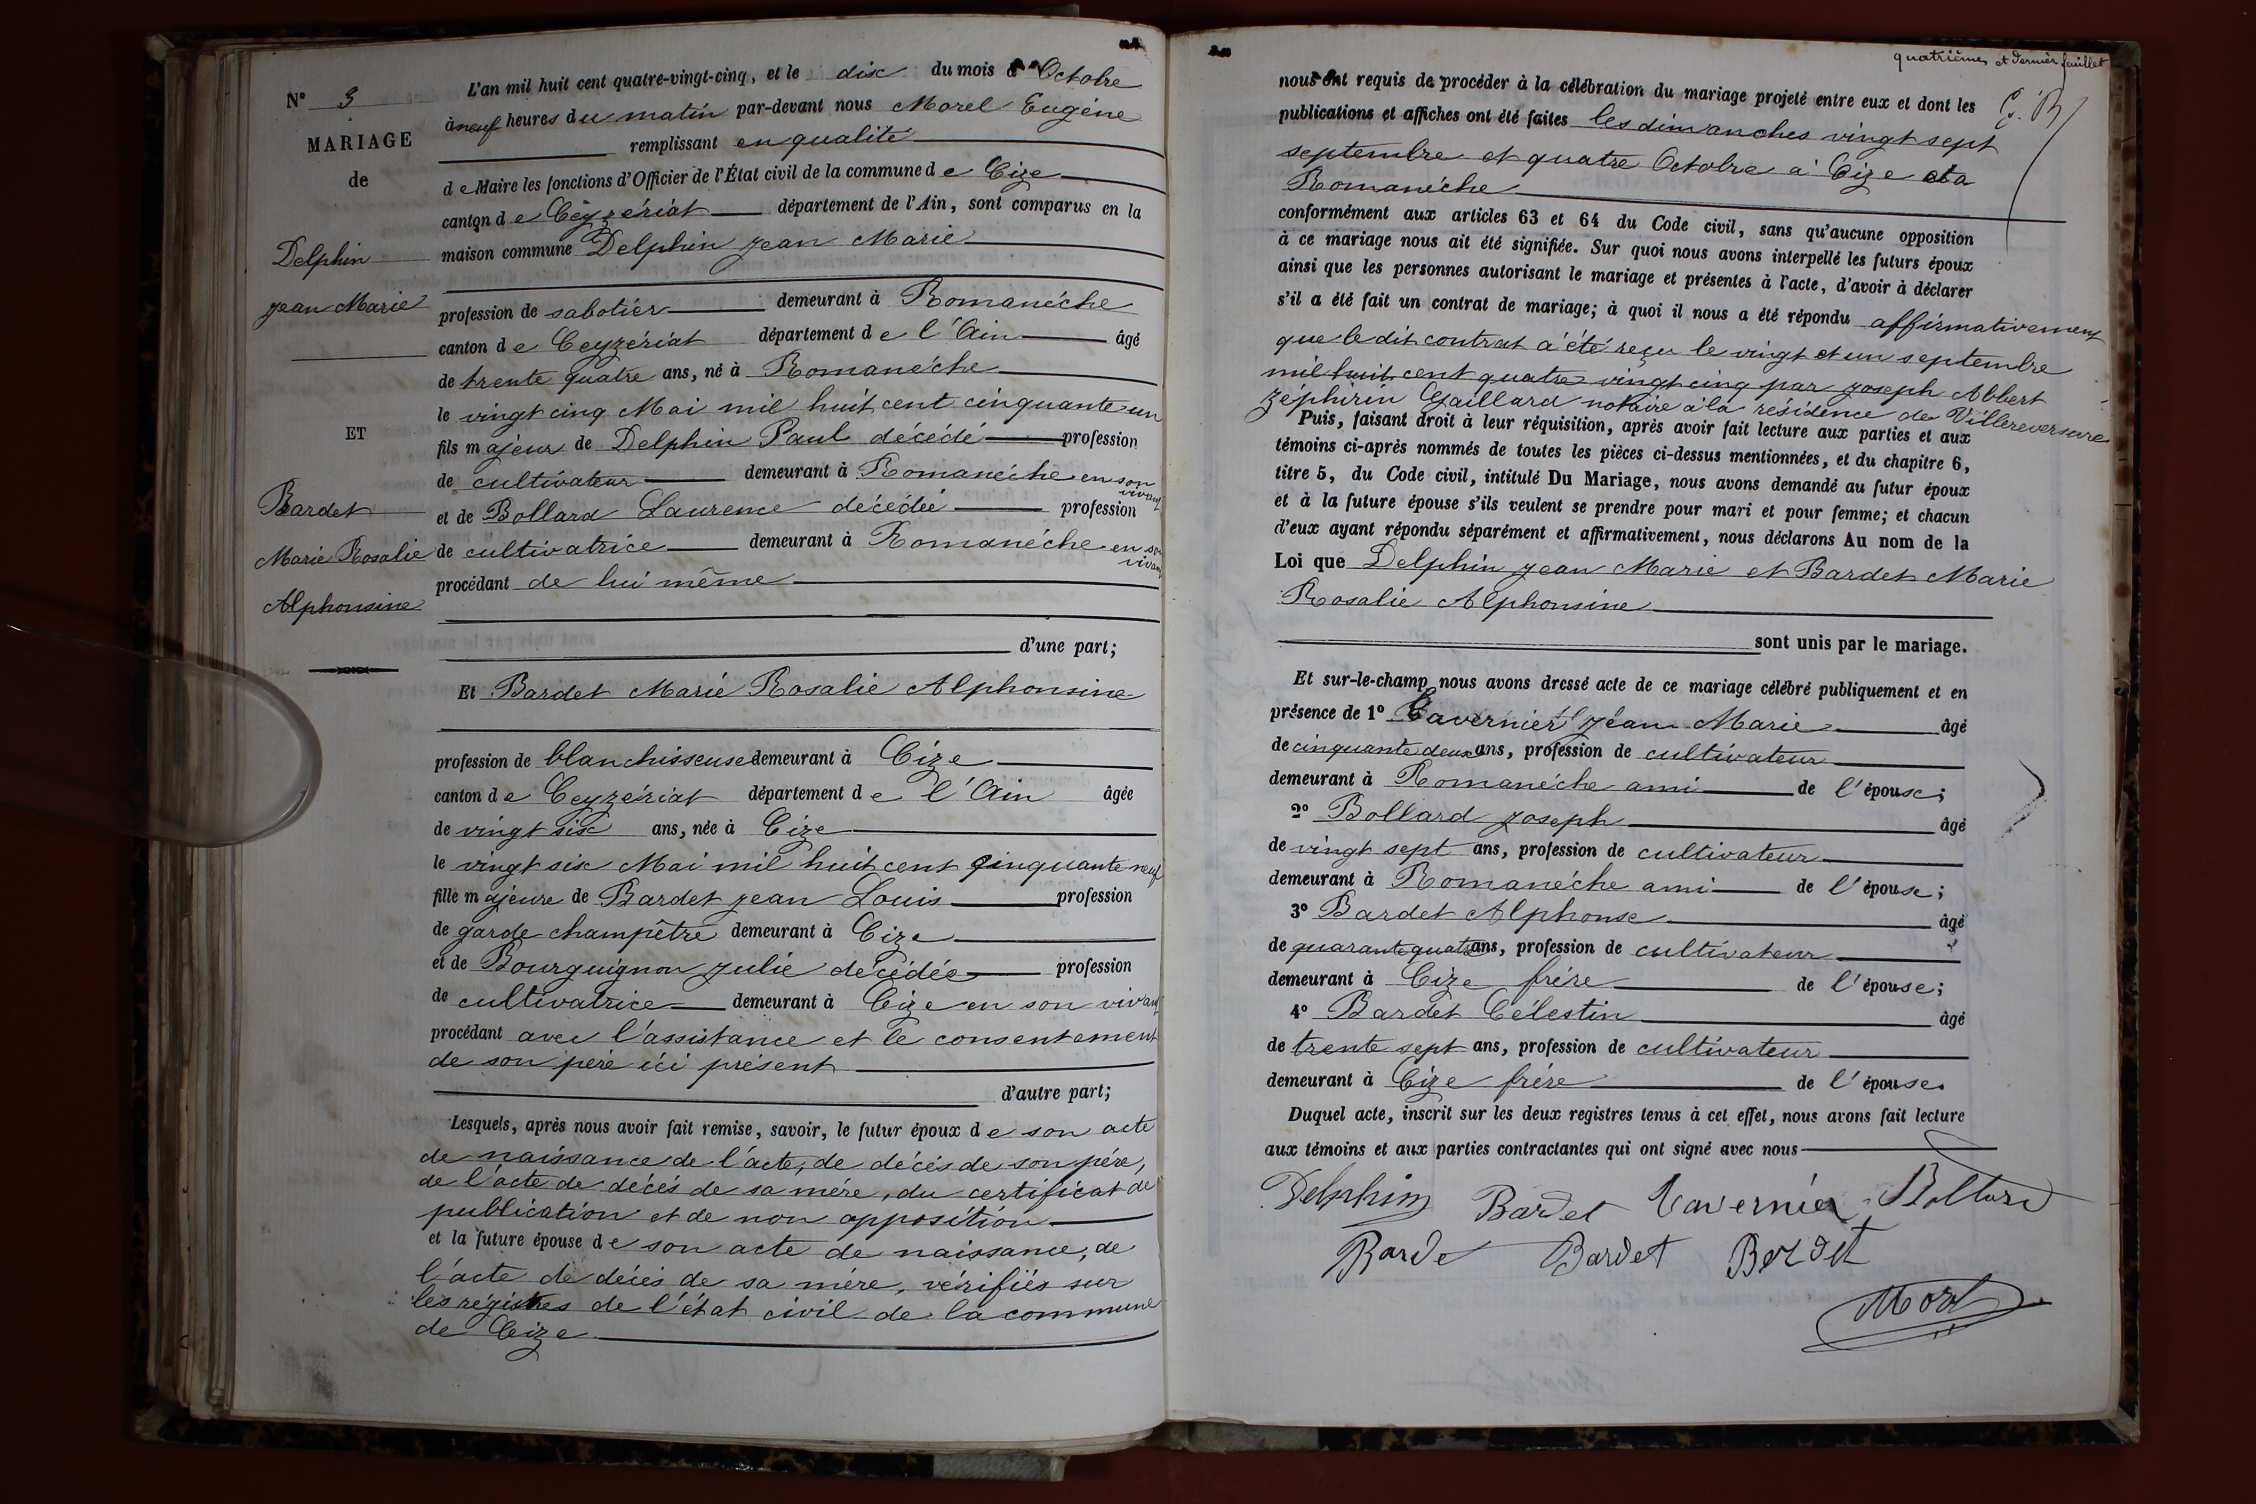 N° 3
MARIAGE
de
Delphin
Jean Marie
ET
Bardet
Marie Rosalie
Alphonsine
L'an mil huit cent quatre-vingt-cinq, et le dix du mois d'Octobre
à neuf heures du matin par-devant nous Morel Eugène
remplissant en qualité
de Maire les fonctions d'Officier de l'État civil de la commune de Cize
canton de Ceyzériat département de l'Ain, sont comparus en la
maison commune Delphin Jean Marie
profession de sabotier demeurant à Romanéche
canton de Ceyzériat département de l'Ain âgé
de trente quatre ans, né à Romanéche
le vingt cinq Mai mil huit cent cinquante un
fils majeur de Delphin Paul décédé profession
de cultivateur demeurant à Romanéche en son vivant
et de Bollard Laurence décédée profession
de cultivatrice demeurant à Romanéche en son vivant
procédant de lui même
d'une part;
Et Bardet Marie Rosalie Alphonsine
profession de blanchisseuse demeurant à Cize
canton de Ceyzériat département de l'Ain âgée
de vingt six ans, née à Cize
le vingt six Mai mil huit cent cinquante neuf
fille majeure de Bardet Jean Louis profession
de garde champêtre demeurant à Cize
et de Bourguignon Julie décédée profession
de cultivatrice demeurant à Cize en son vivant
procédant avec l'assistance et le consentement
de son père ici présent
d'autre part;
Lesquels, après nous avoir fait remise, savoir, le futur époux de son acte
de naissance de l'acte, de décès de son père,
de l'acte de décès de sa mère, du certificat de
publication et de non opposition
et la future épouse de son acte de naissance, de
l'acte de décès de sa mère, vérifiés sur
les registres de l'état civil de la commune
de Cize
quatrième et dernier feuillet
nous ont requis de procéder à la célébration du mariage projeté entre eux et dont les
publications et affiches ont été faites les dimanches vingt sept
septembre et quatre Octobre à Cize et a
Romanéche
conformément aux articles 63 et 64 du Code civil, sans qu'aucune opposition
à ce mariage nous ait été signifiée. Sur quoi nous avons interpellé les futurs époux
ainsi que les personnes autorisant le mariage et présentes à l'acte, d'avoir à déclarer
s'il a été fait un contrat de mariage; à quoi il nous a été répondu affirmativement
que le dit contrat a été reçu le vingt et un septembre
mil huit cent quatre vingt cinq par Joseph Albert
Zéphirin Gaillard notaire à la résidence de Villereversure
Puis, faisant droit à leur réquisition, après avoir fait lecture aux parties et aux
témoins ci-après nommés de toutes les pièces ci-dessus mentionnées, et du chapitre 6,
titre 5, du Code civil, intitulé Du Mariage, nous avons demandé au futur époux
et à la future épouse s'ils veulent se prendre pour mari et pour femme; et chacun
d'eux ayant répondu séparément et affirmativement, nous déclarons Au nom de la
Loi que Delphin Jean Marie et Bardet Marie
Rosalie Alphonsine
sont unis par le mariage.
Et sur-le-champ nous avons dressé acte de ce mariage célébré publiquement et en
présence de 1° Tavernier Jean Marie âgé
de cinquante deux ans, profession de cultivateur
demeurant à Romanéche ami de l'épouse;
2° Bollard Joseph âgé
de vingt sept ans, profession de cultivateur
demeurant à Romanéche ami de l'épouse;
3° Bardet Alphonse âgé
de quarante quatre ans, profession de cultivateur
demeurant à Cize frère de l'épouse;
4° Bardet Célestin âgé
de trente sept ans, profession de cultivateur
demeurant à Cize frère de l'épouse.
Duquel acte, inscrit sur les deux registres tenus à cet effet, nous avons fait lecture
aux témoins et aux parties contractantes qui ont signé avec nous
Delphin Bardet Tavernier Bollard
Barde Bardet Bardet
Morel